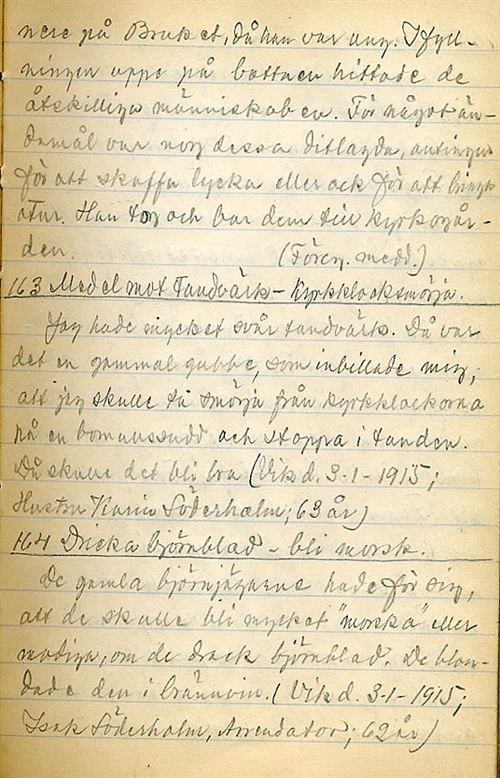 nere på Bruket, då han var ung. I fyll-
ningen uppe på bottnen hittade de
åtskilliga människoben. För något än-
damål var nog dessa ditlagda, antingen
för att skaffa lycka eller ock för att bringa
otur. Han tog och bar dem till kyrkogår-
den. (Föreg. medd.)
163 Medel mot Tandvärk - Kyrkklocksmörja.
Jag hade mycket svår tandvärk. Då var
det en gammal gubbe, som inbillade mig,
att jag skulle ta smörja från kyrkklockorna
på en bomullssudd och stoppa i tanden.
Då skulle det bli bra (Vik d. 3-1-1915;
Hustru Karin Söderholm; 63 år)
164 Dricka björnblod - bli morsk.
De gamla björnjägarne hade för sig,
att de skulle bli mycket "morska" eller
modiga, om de drack björnblod. De blan-
dade den i brännvin. (Vik d. 3-1-1915;
Isak Söderholm, Arrendator; 62 år)